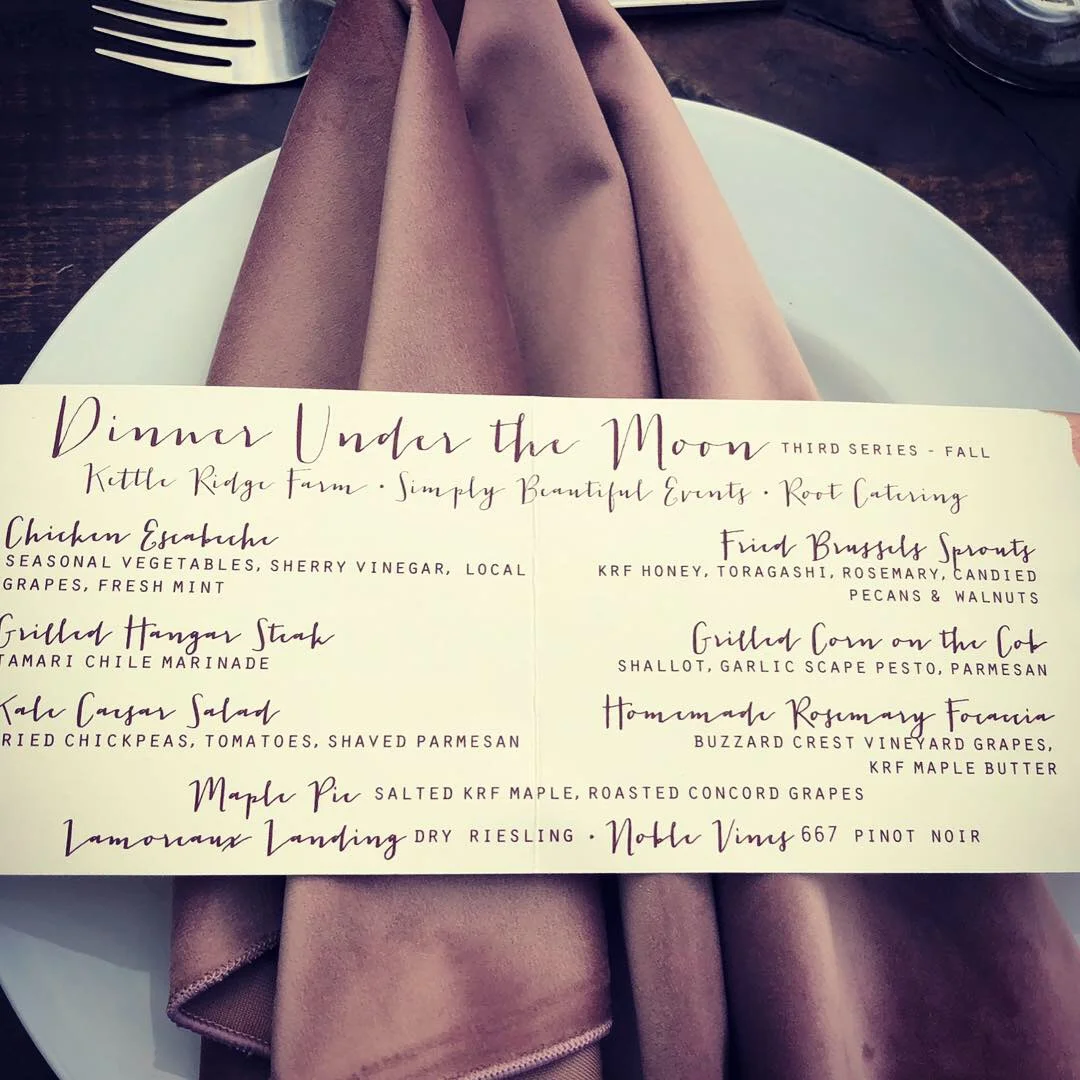 Dinner Under the Moon THIRD SERIES - FALL
Kettle Ridge Farm · Simply Beautiful Events · Root Catering
Chicken Escabeche
SEASONAL VEGETABLES, SHERRY VINEGAR, LOCAL
GRAPES, FRESH MINT
Grilled Hangar Steak
TAMARI CHILE MARINADE
Kale Caesar Salad
RIED CHICKPEAS, TOMATOES, SHAVED PARMESAN
Fried Brussels Sprouts
KRF HONEY, TORAGASHI, ROSEMARY, CANDIED
PECANS & WALNUTS
Grilled Corn on the Cob
SHALLOT, GARLIC SCAPE PESTO, PARMESAN
Homemade Rosemary Focaccia
BUZZARD CREST VINEYARD GRAPES,
KRF MAPLE BUTTER
Maple Pie SALTED KRF MAPLE, ROASTED CONCORD GRAPES
Lamoreaux Landing DRY RIESLING · Noble Vines 667 PINOT NOIR